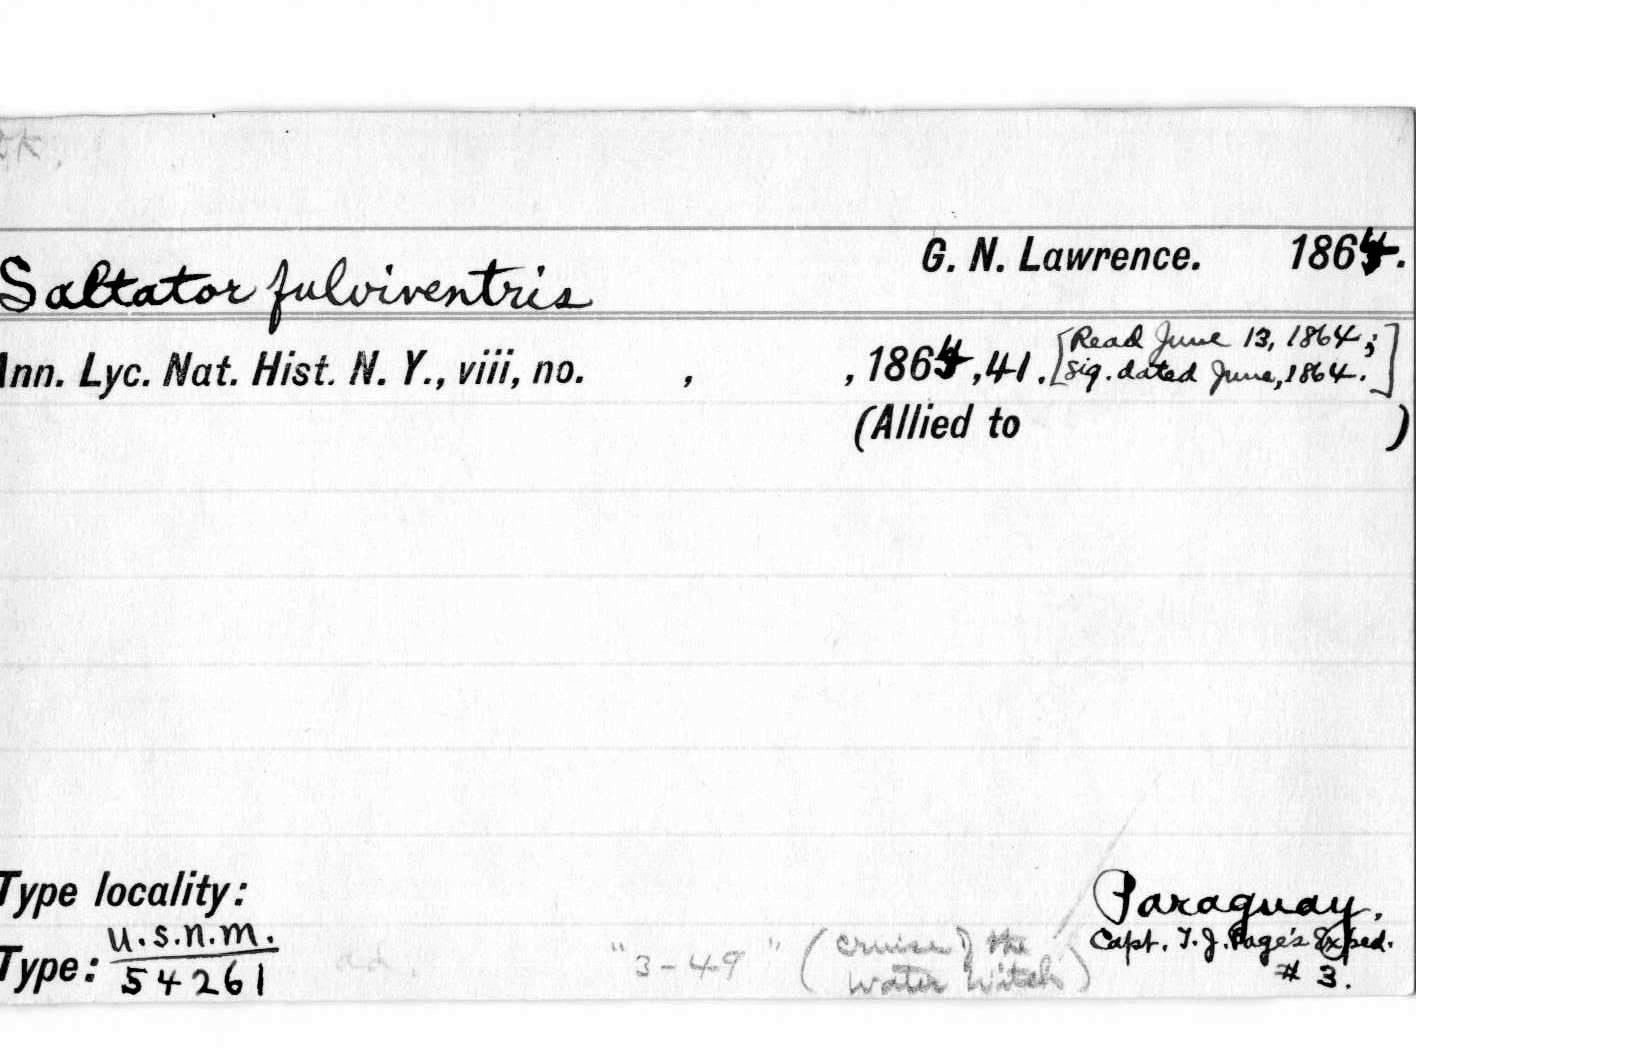 Saltator fulviventris G. N. Lawrence. 1864.
Ann. Lyc. Nat. Hist. N. Y., viii, no. , , 1864, 41. [Read June 13, 1864;
Sig. dated June, 1864.]
(Allied to )
Type locality: Paraguay.
Capt. T. J. Page's Exped.
# 3.
Type: U.S.N.M.
54261 ad. "3-49" (cruise of the
Water Witch)